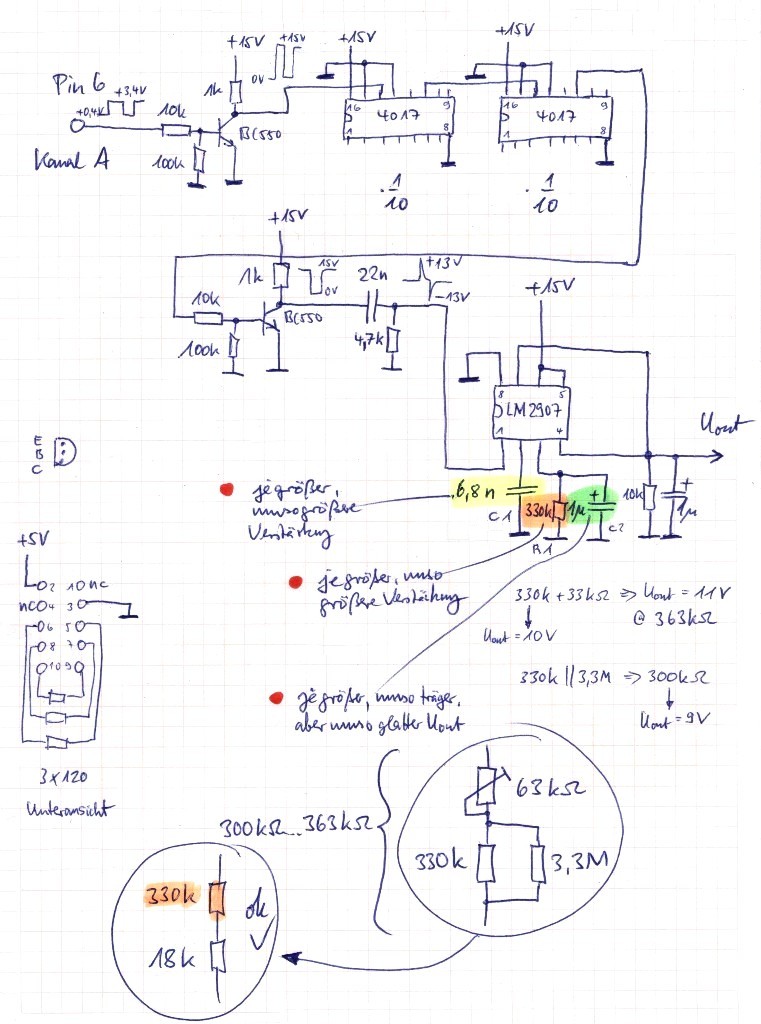 +15V
+15V
0V
+15V
+15V
Pin 6
+3,4V
+0,4V
10k
1k
BC550
100k
Kanal A
16
9
4017
1
8
16
9
4017
1
8
· 1/10
· 1/10
+15V
1k
15V
0V
22n
+13V
-13V
10k
BC550
100k
4,7k
+15V
8
5
LM2907
1
4
Uout
E
B
C
6,8n
C1
330k
R1
1µ
C2
10k
+
1µ
je größer,
umso größere
Verstärkung
je größer, umso
größere Verstärkung
330k + 33kΩ ⇒ Uout = 11V
@ 363kΩ
Uout = 10V
330k || 3,3M ⇒ 300kΩ
Uout = 9V
je größer, umso träger,
aber umso glatter Uout
+5V
2 1 nc
nc 4 3
6 5
8 7
10 9
3 x 120
Unteransicht
300kΩ...363kΩ
63kΩ
330k
3,3M
330k
ok
18k